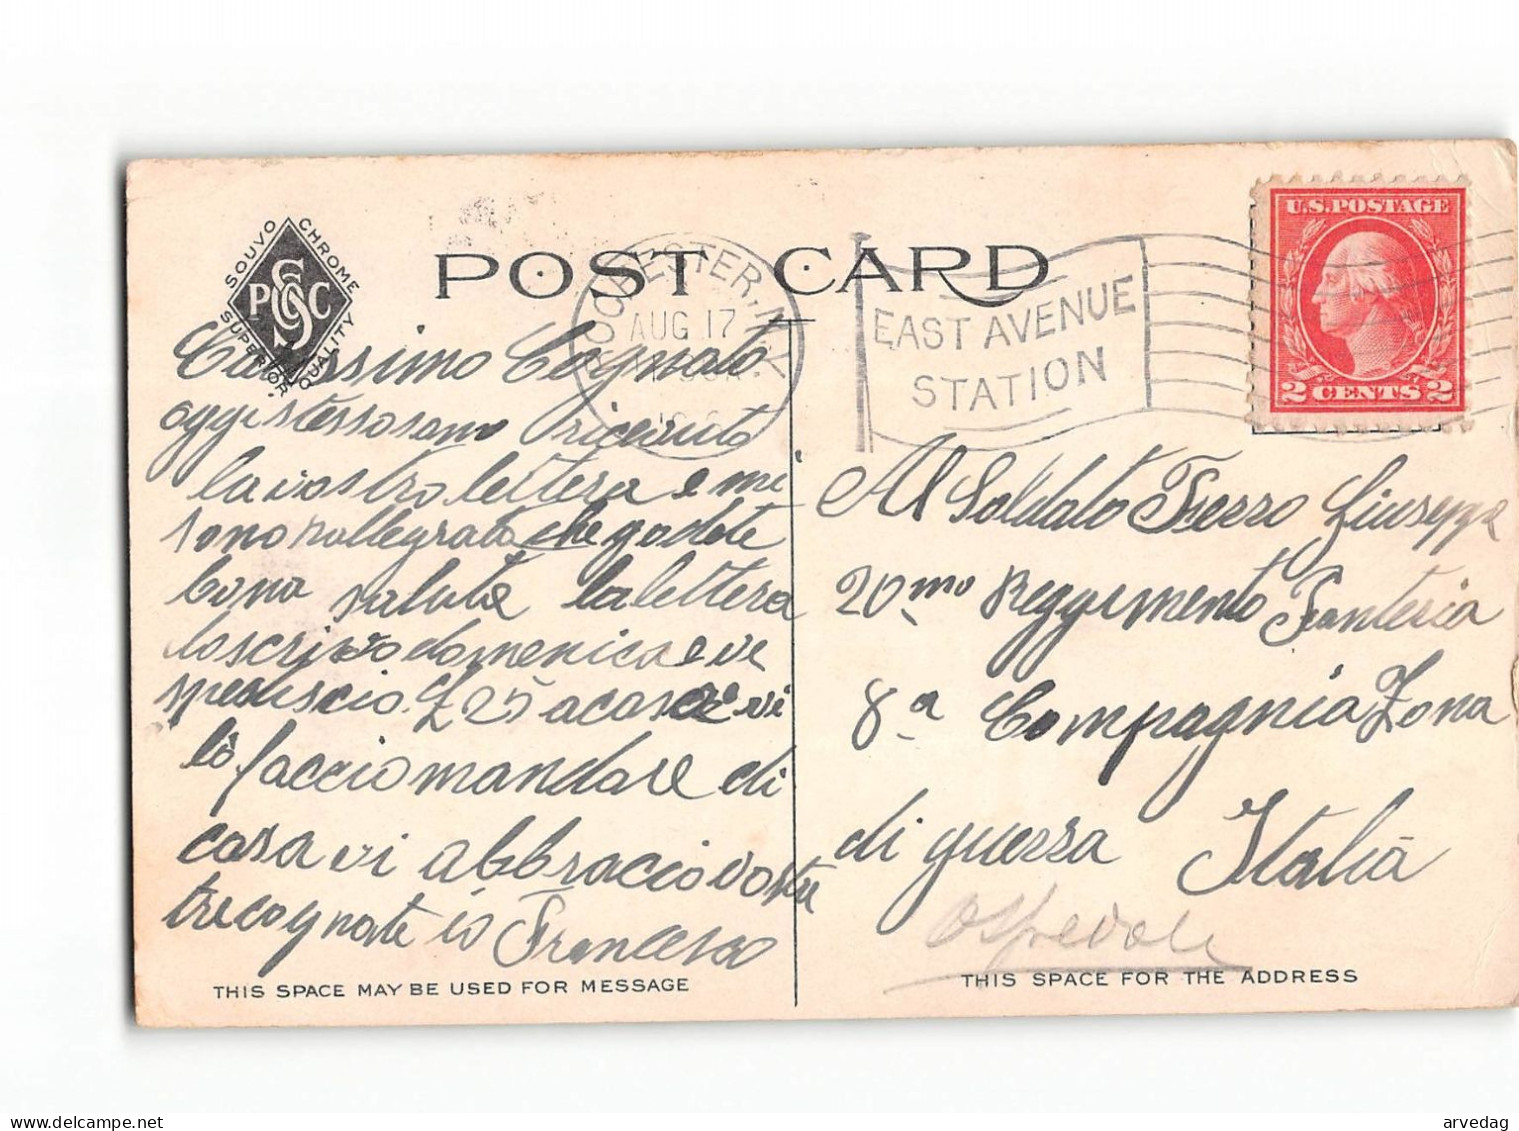 POST CARD
SOUVO CHROME
PSC
SUPERIOR QUALITY
ROCHESTER, N.Y.
AUG 17
EAST AVENUE
STATION
U.S. POSTAGE
2 CENTS 2
Carissimo Cognato
oggi stesso sono riceuuto
la vostro lettera e mi
sono rallegrato che godete
bona salute la lettera
lo scrivo domenica e ve
spediscio £ 25 a casa e vi
lò faccio mandare di
casa vi abbraccio vostre
tre cognate io Francesco
Al Soldato Frezzo Giuseppe
20mo Reggimento Fanteria
8a Compagnia Zona
di guerra Italia
Ospedale
THIS SPACE MAY BE USED FOR MESSAGE
THIS SPACE FOR THE ADDRESS
arvedag